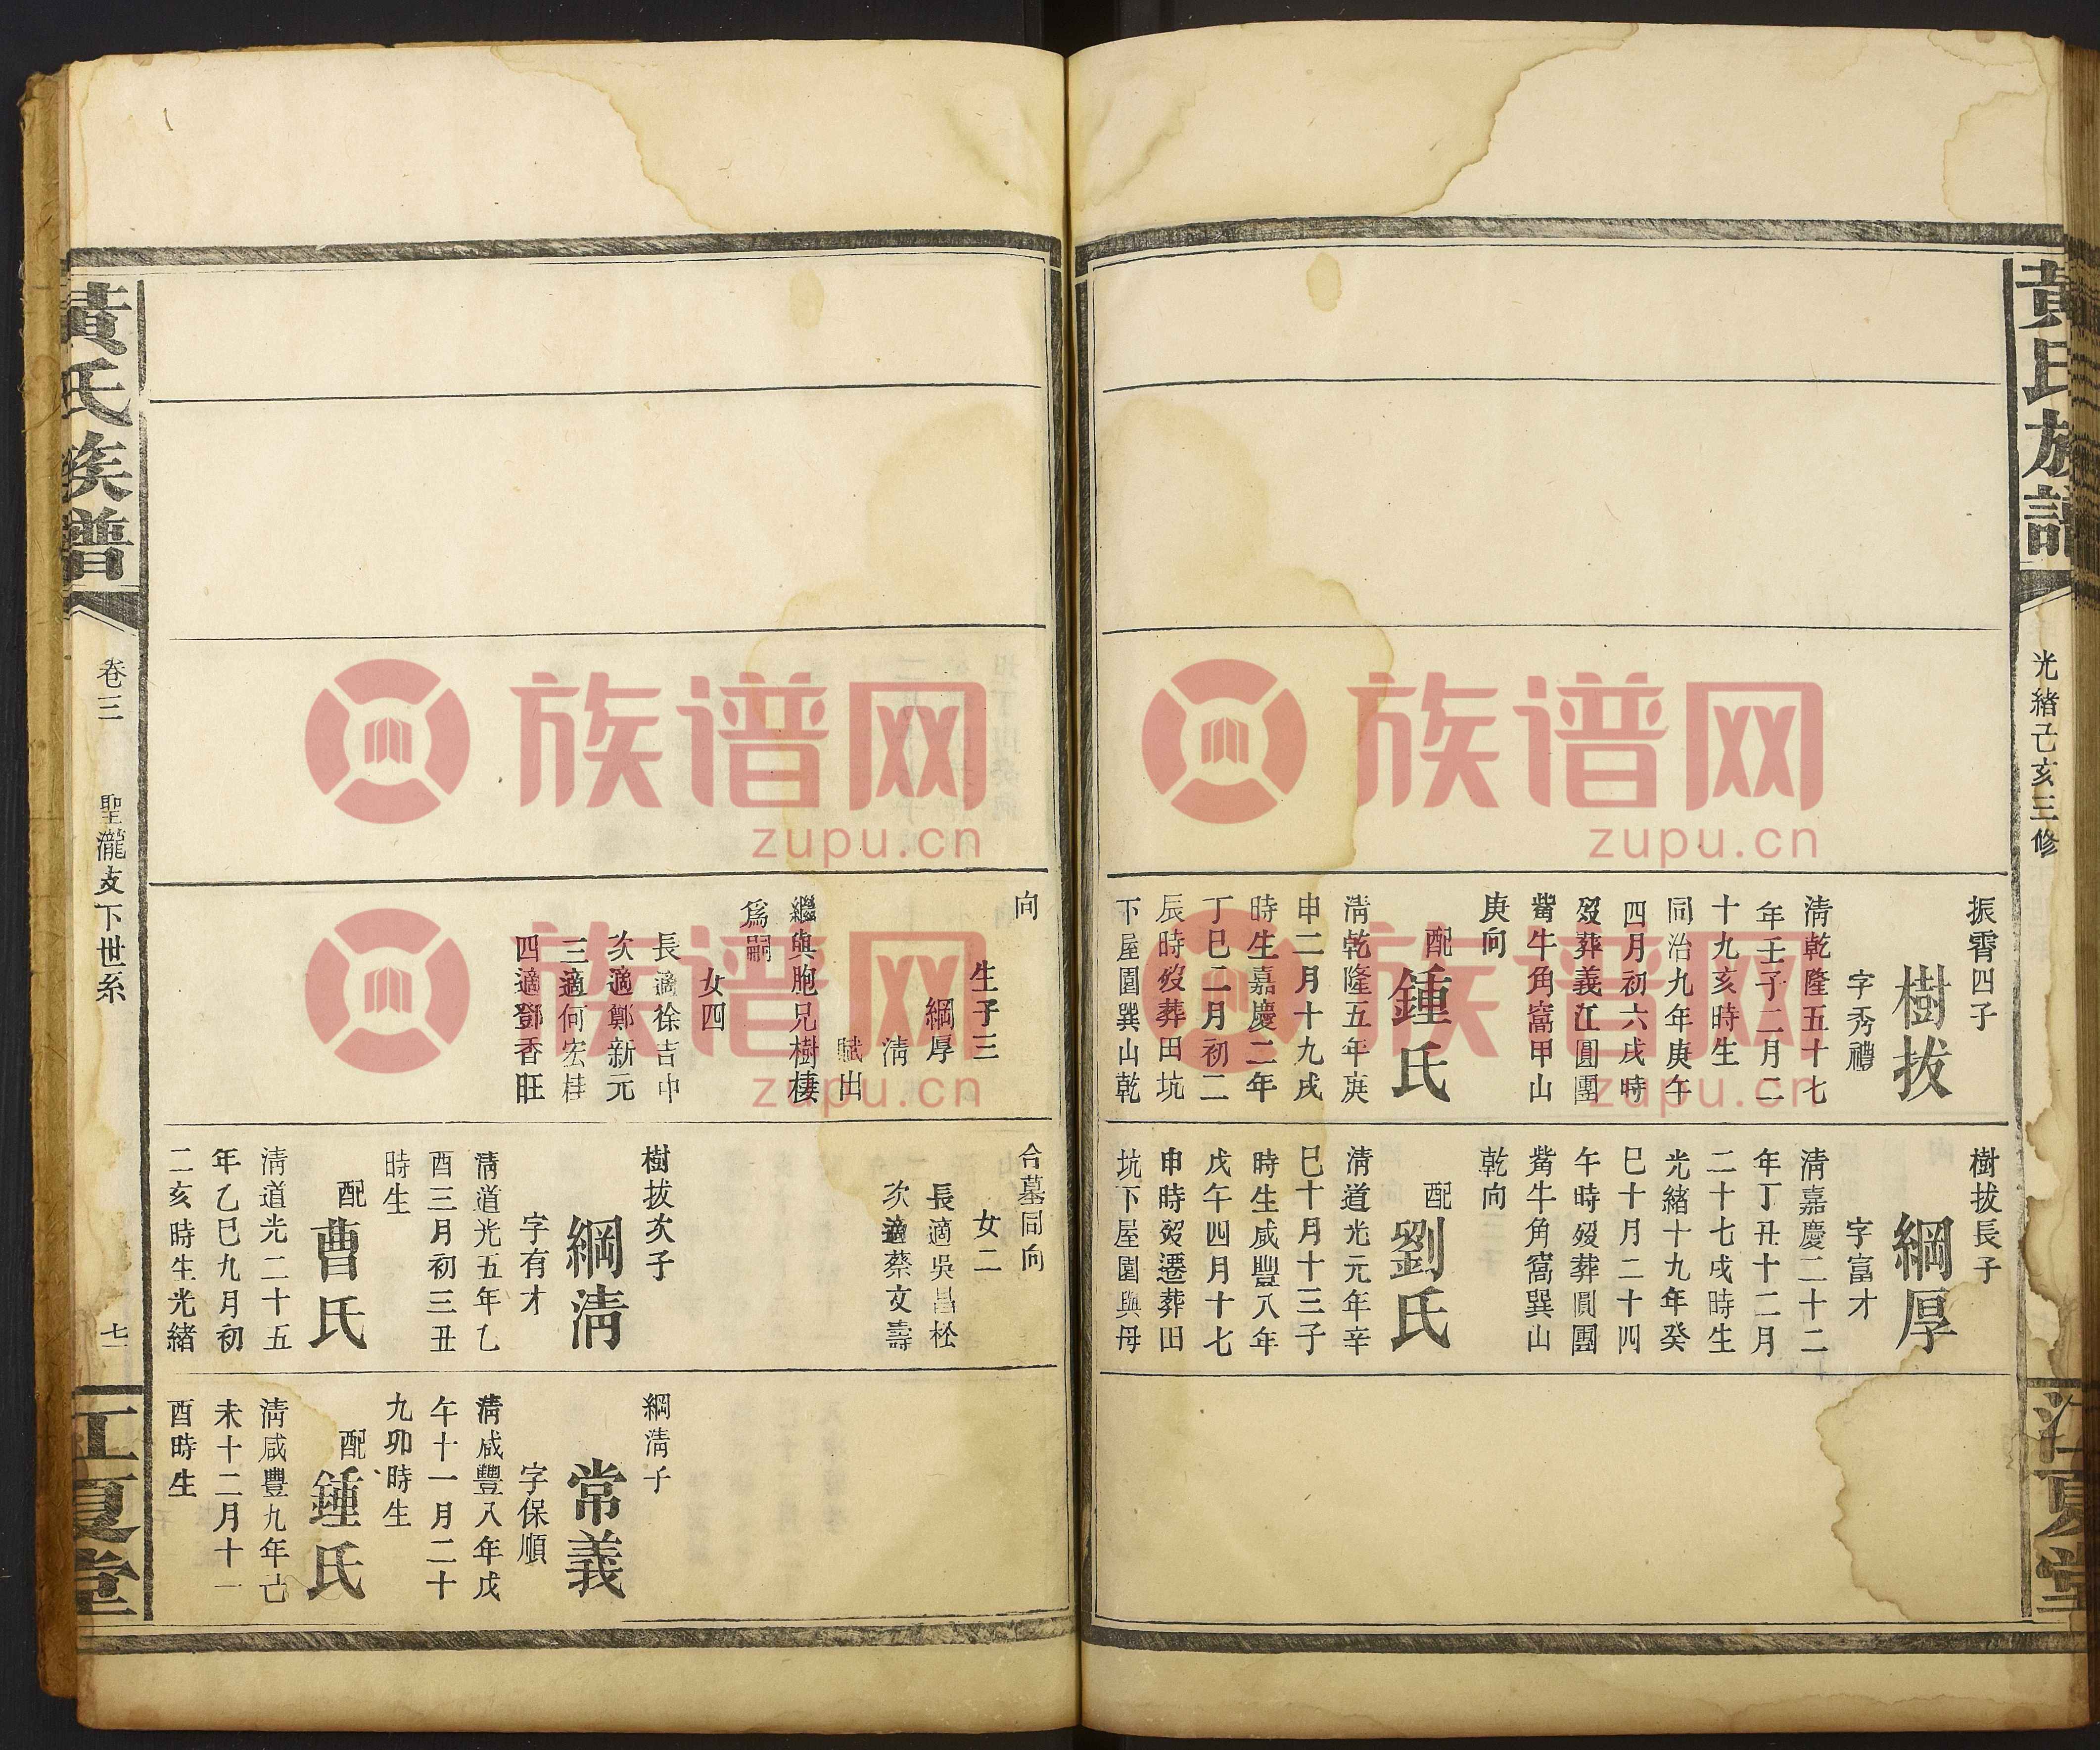 黄氏族譜
光緒己亥三修
江夏堂
振霄四子
樹拔
字秀禮
清乾隆五十七
年壬子二月二
十九亥時生
同治九年庚午
四月初六戌時
歿葬義江圓團
觜牛角窩甲山
庚向
配
鍾氏
清乾隆五年庚
申二月十九戌
時生嘉慶二年
丁巳二月初二
辰時歿葬田坑
下屋園巽山乾
樹拔長子
綱厚
字富才
清嘉慶二十二
年丁丑十二月
二十七戌時生
光緒十九年癸
巳十月二十四
午時歿葬圓團
觜牛角窩巽山
乾向
配
劉氏
清道光元年辛
巳十月十三子
時生咸豐八年
戊午四月十七
申時歿遷葬田
坑下屋園與母
向
生子三
綱厚
清
賦出
繼與胞兄樹棲
為嗣
女四
長適徐吉中
次適鄭新元
三適何宏桂
四適鄧香旺
合墓同向
女二
長適吳昌松
次適蔡文壽
樹拔次子
綱清
字有才
清道光五年乙
酉三月初三丑
時生
配
曹氏
清道光二十五
年乙巳九月初
二亥時生光緒
綱清子
常義
字保順
清咸豐八年戊
午十一月二十
九卯時生
配
鍾氏
清咸豐九年己
未十二月十一
酉時生
黃氏族譜
卷三
聖瀧支下世系
七
江夏堂
族谱网
zupu.cn
族谱网
zupu.cn
族谱网
zupu.cn
族谱网
zupu.cn